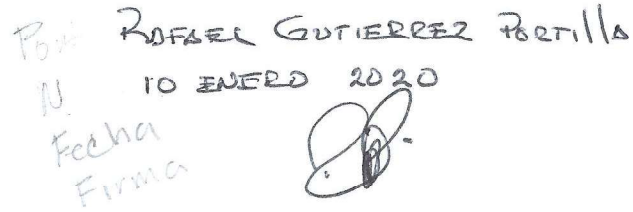 RAFAEL GUTIERREZ PORTILLA
N 10 ENERO 2020
Fecha
Firma